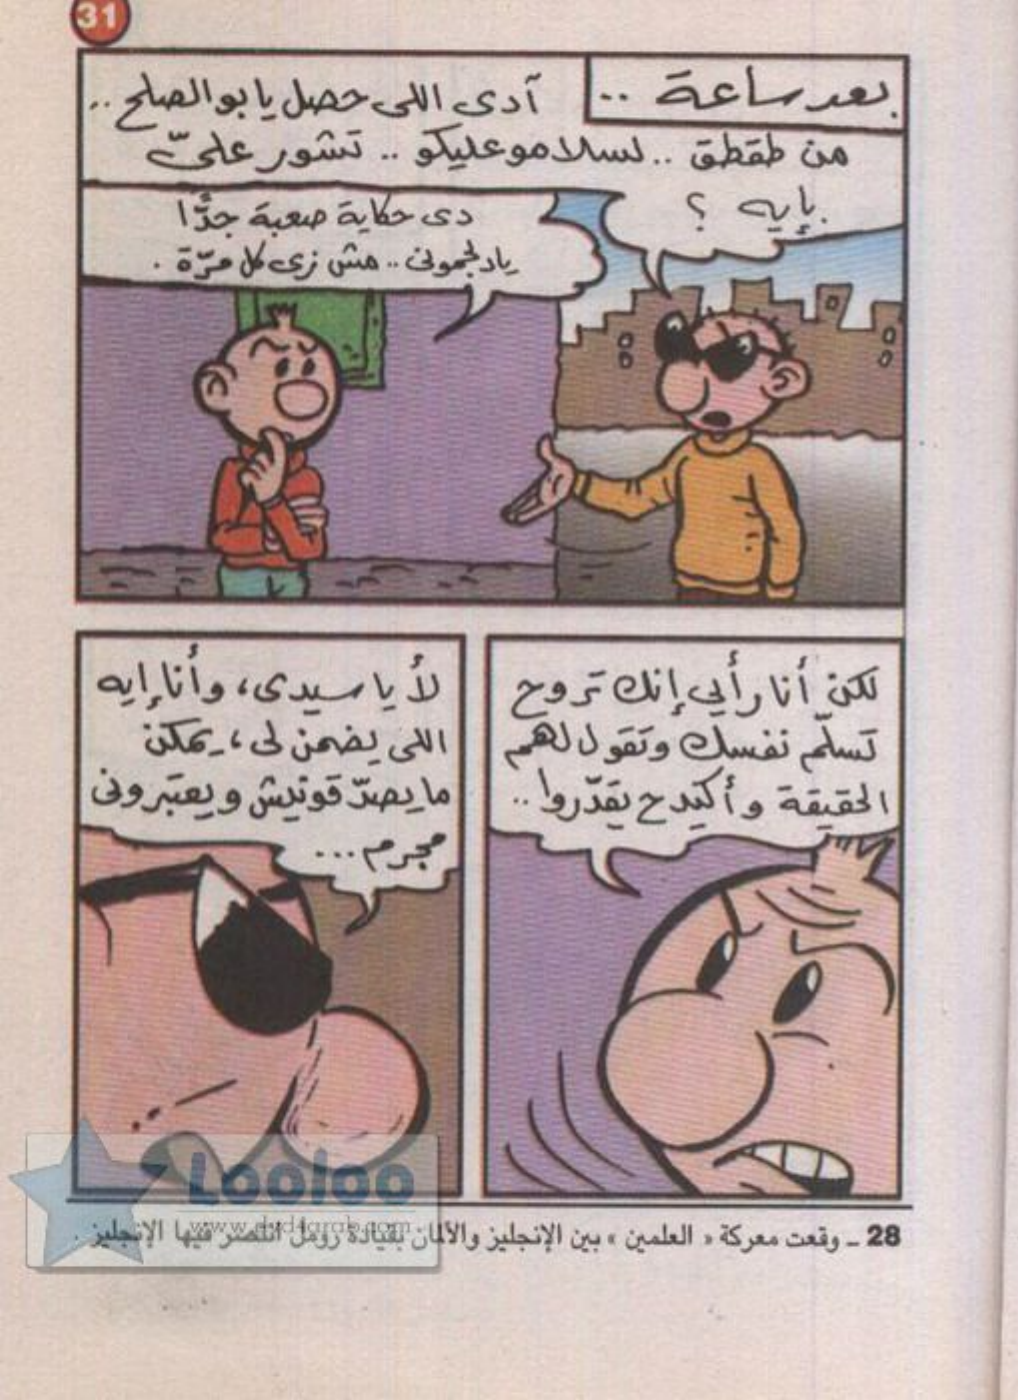 31
بعد ساعة ..
آدى اللى حصل يا بو الصلح ..
من طقطق .. لسلامو عليكو .. تشور علىّ
بإيه ؟
دى حكاية صعبة جدًّا
يا دلجمونى .. مش زى كل مرّة .
لكن أنا رأيى إنك تروح
تسلّم نفسك وتقول لهم
الحقيقة وأكيد ح يقدّروا ..
لأ يا سيدى، وأنا إيه
اللى يضمن لى، يمكن
ما يصدّقونيش ويعتبرونى
مجرم ...
28 ــ وقعت معركة « العلمين » بين الإنجليز والألمان بقيادة رومل انتصر فيها الإنجليز .
Looloo
www.dvd4arab.com